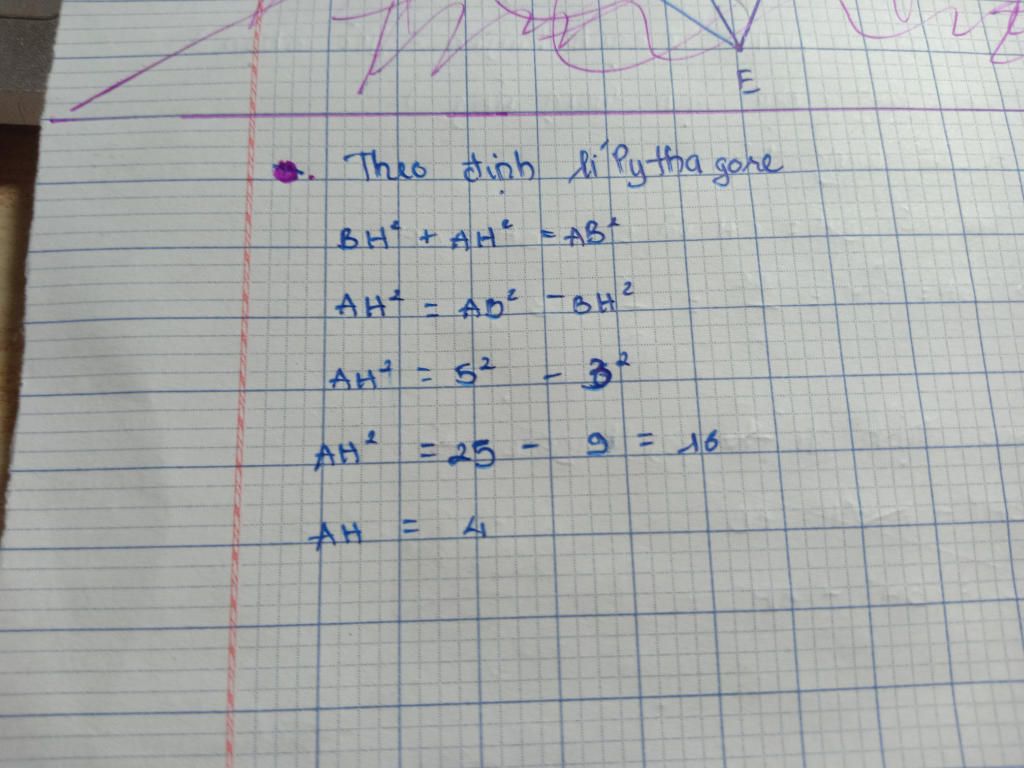 E
Theo định lí Pythagore
BH² + AH² = AB²
AH² = AB² - BH²
AH² = 5² - 3²
AH² = 25 - 9 = 16
AH = 4